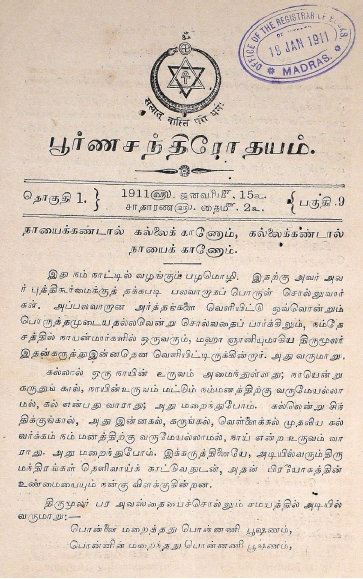 OFFICE OF THE REGISTRAR OF BOOKS,
19 JAN 1911
MADRAS.
பூர்ணசந்திரோதயம்.
தொகுதி 1.
1911௵ ஜனவரி௴ 15௳
சாதாரண௵ தை௴ 2௳
பகுதி 9
நாயைக்கண்டால் கல்லைக் காணோம், கல்லைக்கண்டால்
நாயைக் காணோம்.
இது நம் நாட்டில் வழங்கும் பழமொழி. இதற்கு அவர் அவ
ர் புத்திகூர்மைக்குத் தக்கபடி பலவாறாகப் பொருள் சொல்லுவார்
கள். அப்பலவான அர்த்தங்களை வெளியிட்டு ஒவ்வொன்றும்
பொருத்தமுடையதல்லவென்று சொல்வதைப் பார்க்கிலும், நம்தே
சத்தில் நாயன்மார்களில் ஒருவரும், மஹா ஞானியுமாகிய திருமூலர்
இதன்கருத்துஇன்தென வெளியிட்டிருக்கின்றார். அது வருமாறு.
கல்லால் ஒரு நாயின் உருவம் அமைந்துள்ளது; நாயென்று
கருதுங் கால், நாயின்உருவம் மட்டும் நம்மனத்திற்கு வருமேயல்லா
மல், கல் என்பது வாராது; அது மறைந்துபோம். கல்லென்று சிந்
திக்குங்கால், அது இன்னகல், கருங்கல், வெள்ளைக்கல் முதலிய கல்
வர்க்கம் நம் மனத்திற்கு வருமேயல்லாமல், நாய் என்ற உருவம் வா
ராது. அது மறைந்துபோம். இக்கருத்தினையே, அடியில்வரும்திரு
மந்திரங்கள் தெளிவாய்க் காட்டுவதுடன், அதன் பிரயோகத்தின்
உண்மையையும் நன்கு விளக்குகின்றன.
திருமூலர் பர அவஸ்தையைச்சொல்லும் சமயத்தில் அடியில்
வருமாறு:—
பொன்னை மறைத்தது பொன்னணி பூஷணம்,
பொன்னின் மறைந்தது பொன்னணி பூஷணம்,